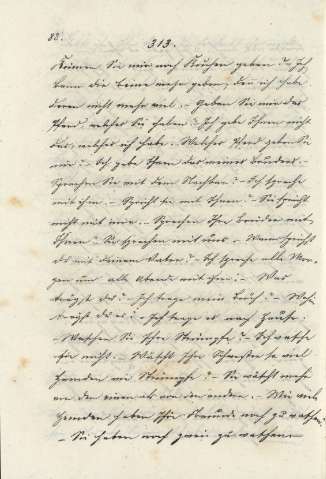 88.
313.
Können Sie mir noch Kuchen geben? Ich
kann Ihnen keine mehr geben, denn ich habe
deren nicht mehr viel. - Geben Sie mir das
Pferd welches Sie haben? Ich gebe Ihnen nicht
das, welches ich habe. Welches Pferd geben Sie
mir? - Ich gebe Ihnen das meines Bruders. -
Sprechen Sie mit dem Nachbar? - Ich spreche
mit ihm. - Spricht er mit Ihnen? Er spricht
nicht mit mir. - Sprechen Ihre Brüder mit
Ihnen? Sie sprechen mit uns. - Wann sprichst
du mit deinem Vater? - Ich spreche alle Mor-
gen und alle Abende mit ihm. - Was
trägst du? Ich trage mein Buch? - Wohin
trägst du es? - Ich trage es nach Hause.
- Waschen Sie Ihre Strümpfe? - Ich wasche
sie nicht. - Wäscht Ihre Schwester so viel
Hemden wie Strümpfe? - Sie wäscht mehr
von den einen als von den andern. - Wie viele
Hemden haben Ihre Freunde noch zu waschen?
- Sie haben noch zwei zu waschen. -